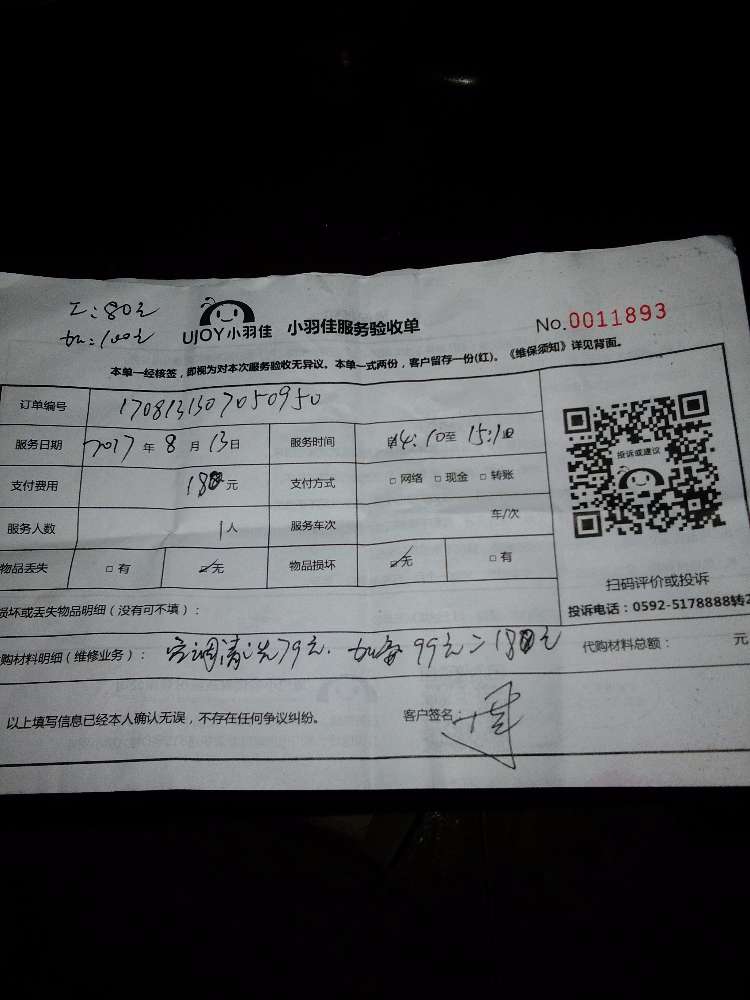 工:80元
加:100元
UJOY小羽佳 小羽佳服务验收单 No.0011893
本单一经核签，即视为对本次服务验收无异议。本单一式两份，客户留存一份(红)。《维保须知》详见背面。
订单编号 1708131307050950
服务日期 2017年8月13日 服务时间 14:10至15:10
支付费用 180元 支付方式 □网络 □现金 □转账
服务人数 1人 服务车次 车/次
物品丢失 □有 ☑无 物品损坏 ☑无 □有
投诉或建议
扫码评价或投诉
投诉电话：0592-5178888转2
损坏或丢失物品明细（没有可不填）：
购材料明细（维修业务）： 空调清洗79元. 加 99元=180元 代购材料总额： 元
以上填写信息已经本人确认无误，不存在任何争议纠纷。 客户签名：